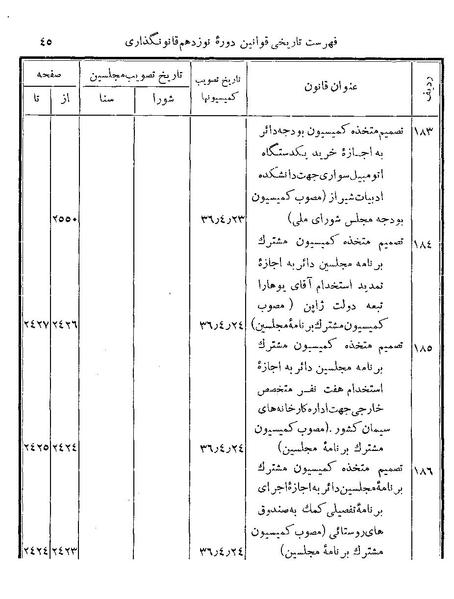 فهرست تاریخی قوانین دورهٔ نوزدهم قانونگذاری ٤٥
ردیف عنوان قانون تاریخ تصویب کمیسیونها تاریخ تصویب مجلسین صفحه
شورا سنا از تا
١٨٣ تصمیم متخذه کمیسیون بودجه دائر
به اجازهٔ خرید یکدستگاه
اتومبیل سواری جهت دانشکده
ادبیات شیراز (مصوب کمیسیون
بودجه مجلس شورای ملی) ٣٦٫٤٫٢٣ ٢٥٥٠
١٨٤ تصمیم متخذه کمیسیون مشترك
برنامه مجلسین دائر به اجازهٔ
تمدید استخدام آقای یوهارا
تبعه دولت ژاپن (مصوب
کمیسیون مشترك برنامهٔ مجلسین) ٣٦٫٤٫٢٤ ٢٤٢٦ ٢٤٢٧
١٨٥ تصمیم متخذه کمیسیون مشترك
برنامه مجلسین دائر به اجازهٔ
استخدام هفت نفر متخصص
خارجی جهت اداره کارخانه‌های
سیمان کشور .(مصوب کمیسیون
مشترك برنامهٔ مجلسین) ٣٦٫٤٫٢٤ ٢٤٢٤ ٢٤٢٥
١٨٦ تصمیم متخذه کمیسیون مشترك
برنامهٔ مجلسین دائر به اجازهٔ اجرای
برنامهٔ تفصیلی کمك به صندوق
های روستائی (مصوب کمیسیون
مشترك برنامهٔ مجلسین) ٣٦٫٤٫٢٤ ٢٤٢٣ ٢٤٢٤